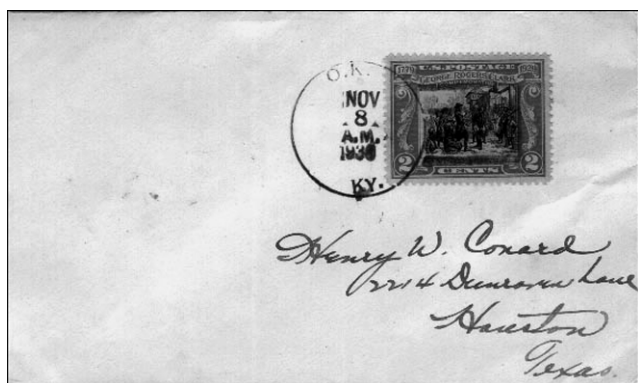 O.K.
NOV
8
A.M.
KY.
U.S. POSTAGE
1779 1929
GEORGE ROGERS CLARK
2 2
CENTS
Henry W. Conard
2214 Dunraven Lane
Houston
Texas.